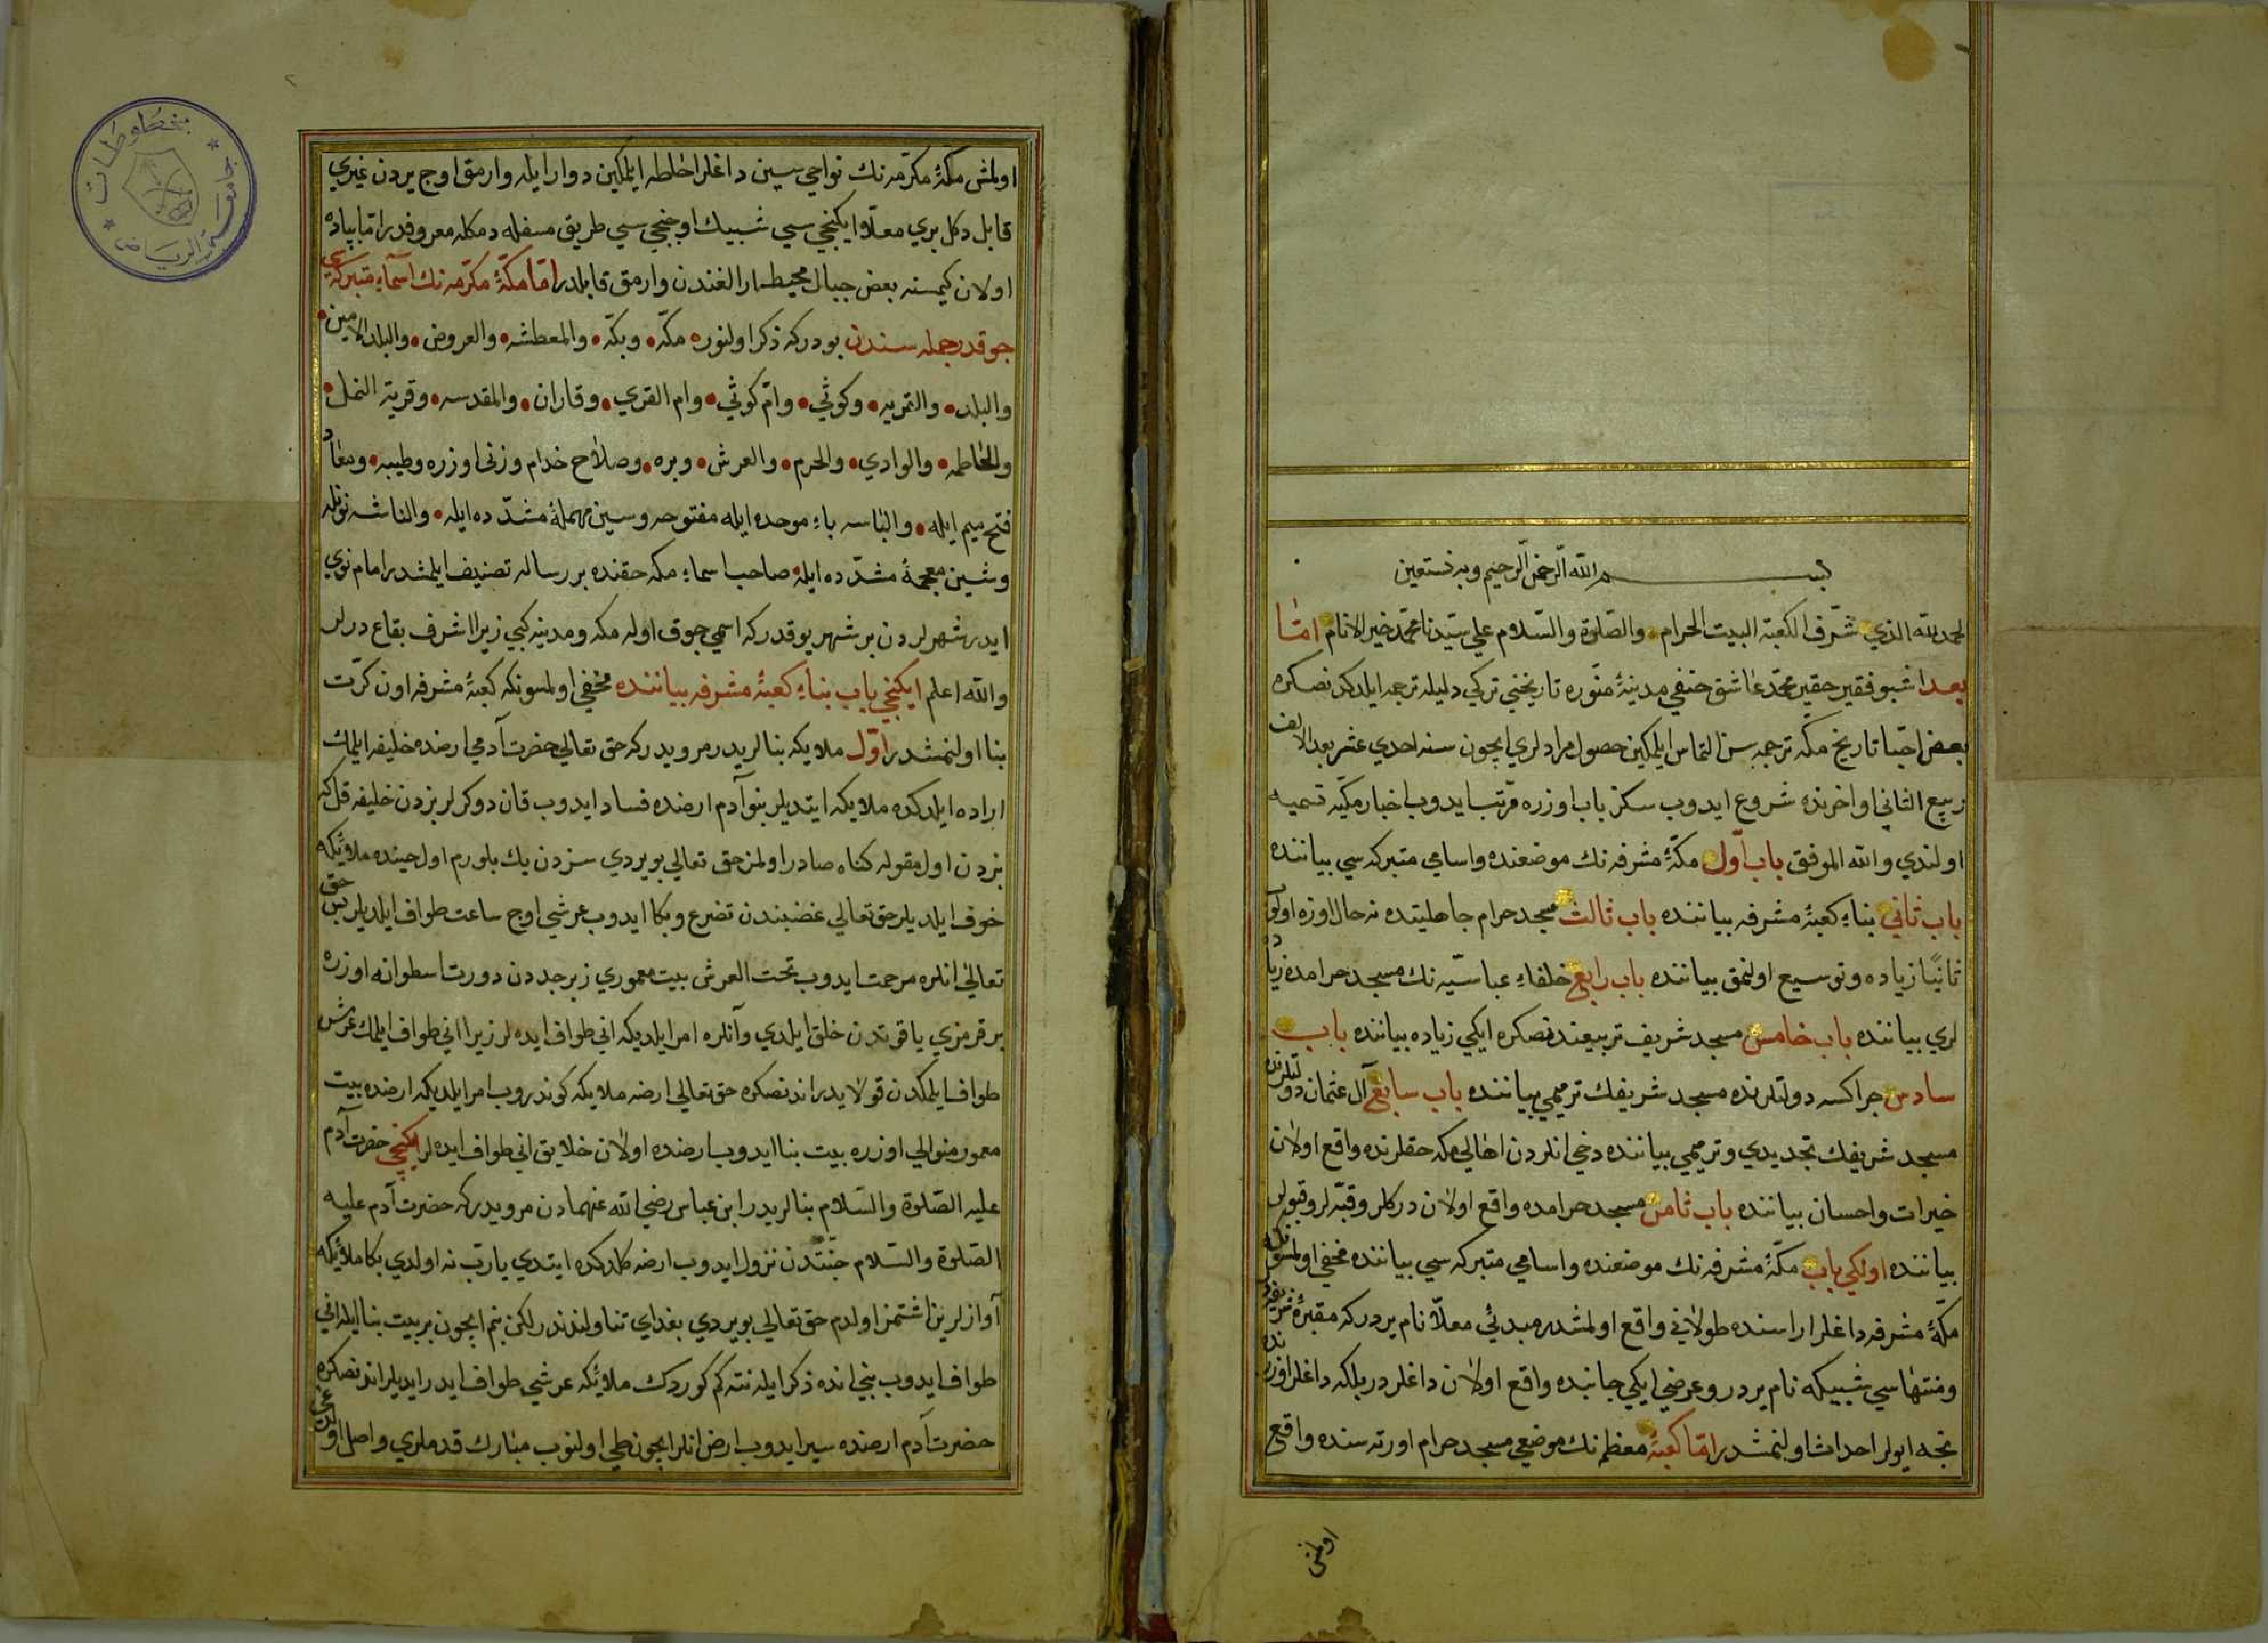 بسم الله الرحمن الرحيم وبه نستعين
الحمد لله الذي شرّف الكعبة البيت الحرام والصّلوة والسّلام علي سيّدنا محمّد خير الانام امّا
بعد اشبو فقير حقير محمّد عاشق حنفي مدينۀ منوره تاريخني تركي دليله ترجمه ايلدكدنصكره
بعض احبّا تاريخ مكّه ترجمه سن التماس ايلمكين حصول مرادلري ايچون سنه احدي عشر بعد الالف
ربيع الثاني اواخرنده شروع ايدوب سكز باب اوزره مرتب ايدوب اخبار مكيّه تسميه
اولندي والله الموفق باب اوّل مكّۀ مشرفه نك موضعنده واسامي متبركه سي بياننده
باب ثاني بناء كعبۀ مشرفه بياننده باب ثالث مسجد حرام جاهليتده نه حال اوزره اولوب
ثانيًا زياده وتوسيع اولنمق بياننده باب رابع خلفاء عباسيّه نك مسجد حرامده زياده
لري بياننده باب خامس مسجد شريف تربيعندنصكره ايكي زياده بياننده باب
سادس جراكسه دولتلرنده مسجد شريفك ترميمي بياننده باب سابع آل عثمان دولتلرنده
مسجد شريفك تجديدي وترميمي بياننده دخي انلردن اهالي مكه حقلرنده واقع اولان
خيرات واحسان بياننده باب ثامن مسجد حرامده واقع اولان دركلر وقبّه لر وقپولر
بياننده اولكي باب مكّۀ مشرفه نك موضعنده واسامي متبركه سي بياننده مخفي اولمسونكه
مكّۀ مشرفه داغلر اراسنده طولاني واقع اولمشدر مبدئي معلّا نام يردر كه مقبرۀ شريفه در
ومنتهاسي شبيكه نام يردر وعرضي ايكي جانبده واقع اولان داغلردر بلكه داغلر اوزرنده
نجه اولر احداث اولنمشدر امّا كعبۀ معظمه نك موضعي مسجد حرام اورته سنده واقع
اولمش
اولمش مكّۀ مكرّمه نك نواحي سين داغلر احاطه ايلمكين دوار ايله وارمق اوچ يردن غيري
قابل دكل بري معلّا ايكنجي سي شبيك اوچنجي سي طريق مسفله دمكله معروفدر امّا پياده
اولان كيمسنه بعض جبال محيطه ارالغندن وارمق قابلدر امّا مكّۀ مكرّمه نك اسماء متبركه سي
جوقدر جمله سندن بودر كه ذكر اولنور مكّه وبكّه والمعطشه والعروض والبلد الامين
والبلد والقريه وكوثي وامّ كوثي وام القري وقاران والمقدسه وقرية النمل
والحاطمه والوادي والحرم والعرش وبره وصلاح خدام وزني اوزره وطيبه ومعاد
فتح ميم ايله والباسه باء موحده ايله مفتوحه وسين مهملۀ مشدّده ايله والناشه نونله
وشين معجمۀ مشدّده ايله صاحب اسماء مكه حقنده بر رساله تصنيف ايلمشدر امام نوي
ايدر شهرلردن بر شهر يوقدر كه اسمي جوق اوله مكه ومدينه كبي زيرا اشرف بقاع درلر
والله اعلم ايكنجي باب بناء كعبۀ مشرفه بياننده مخفي اولمسونكه كعبۀ مشرفه اون كرّت
بنا اولنمشدر اوّل ملايكه بنالريدر مرويدر كه حق تعالي حضرت آدمي ارضده خليفه ايلمك
اراده ايلدكده ملايكه ايتديلر بنو آدم ارضده فساد ايدوب قان دوكرلر بزدن خليفه قل كه
بزدن اول مقوله كناه صادر اولمز حق تعالي بويردي سزدن يك بلورم اول حينده ملائكه
خوف ايلديلر حق تعالي غضبندن تضرع وبكا ايدوب عرشي اوچ ساعت طواف ايلديلر پس حق
تعالي انلره مرحمت ايدوب تحت العرش بيت معموري زبرجددن دورت اسطوانه اوزره
بر قرمزي ياقوتدن خلق ايلدي وآنلره امر ايلديكه اني طواف ايده لر زيرا اني طواف ايلمك عرش
طواف ايلمكدن قولايدر اندنصكره حق تعالي ارضه ملايكه كوندروب امر ايلديكه ارضده بيت
معمور منوالي اوزره بيت بنا ايدوب ارضده اولان خلايق اني طواف ايده لر ايكنجي حضرت آدم
عليه الصّلوة والسّلام بنالريدر ابن عباس رضي الله عنهمادن مرويدر كه حضرت آدم عليه
الصّلوة والسّلام جنّتدن نزول ايدوب ارضه كلدكده ايتدي يا ربّ نه اولدي بكا ملائكه
آوازلرين اشتمز اولدم حق تعالي بويردي بغداي تناولندندر لكن بنم ايچون بر بيت بنا ايله اني
طواف ايدوب بني انده ذكر ايله نته كم كوردك ملائكه عرشي طواف ايدر ايديلر اندنصكره
حضرت آدم ارضده سير ايدوب ارض انلر ايچون طي اولنوب مبارك قدملري واصل اولدوغي
مخطوطات
جامعة الرياض